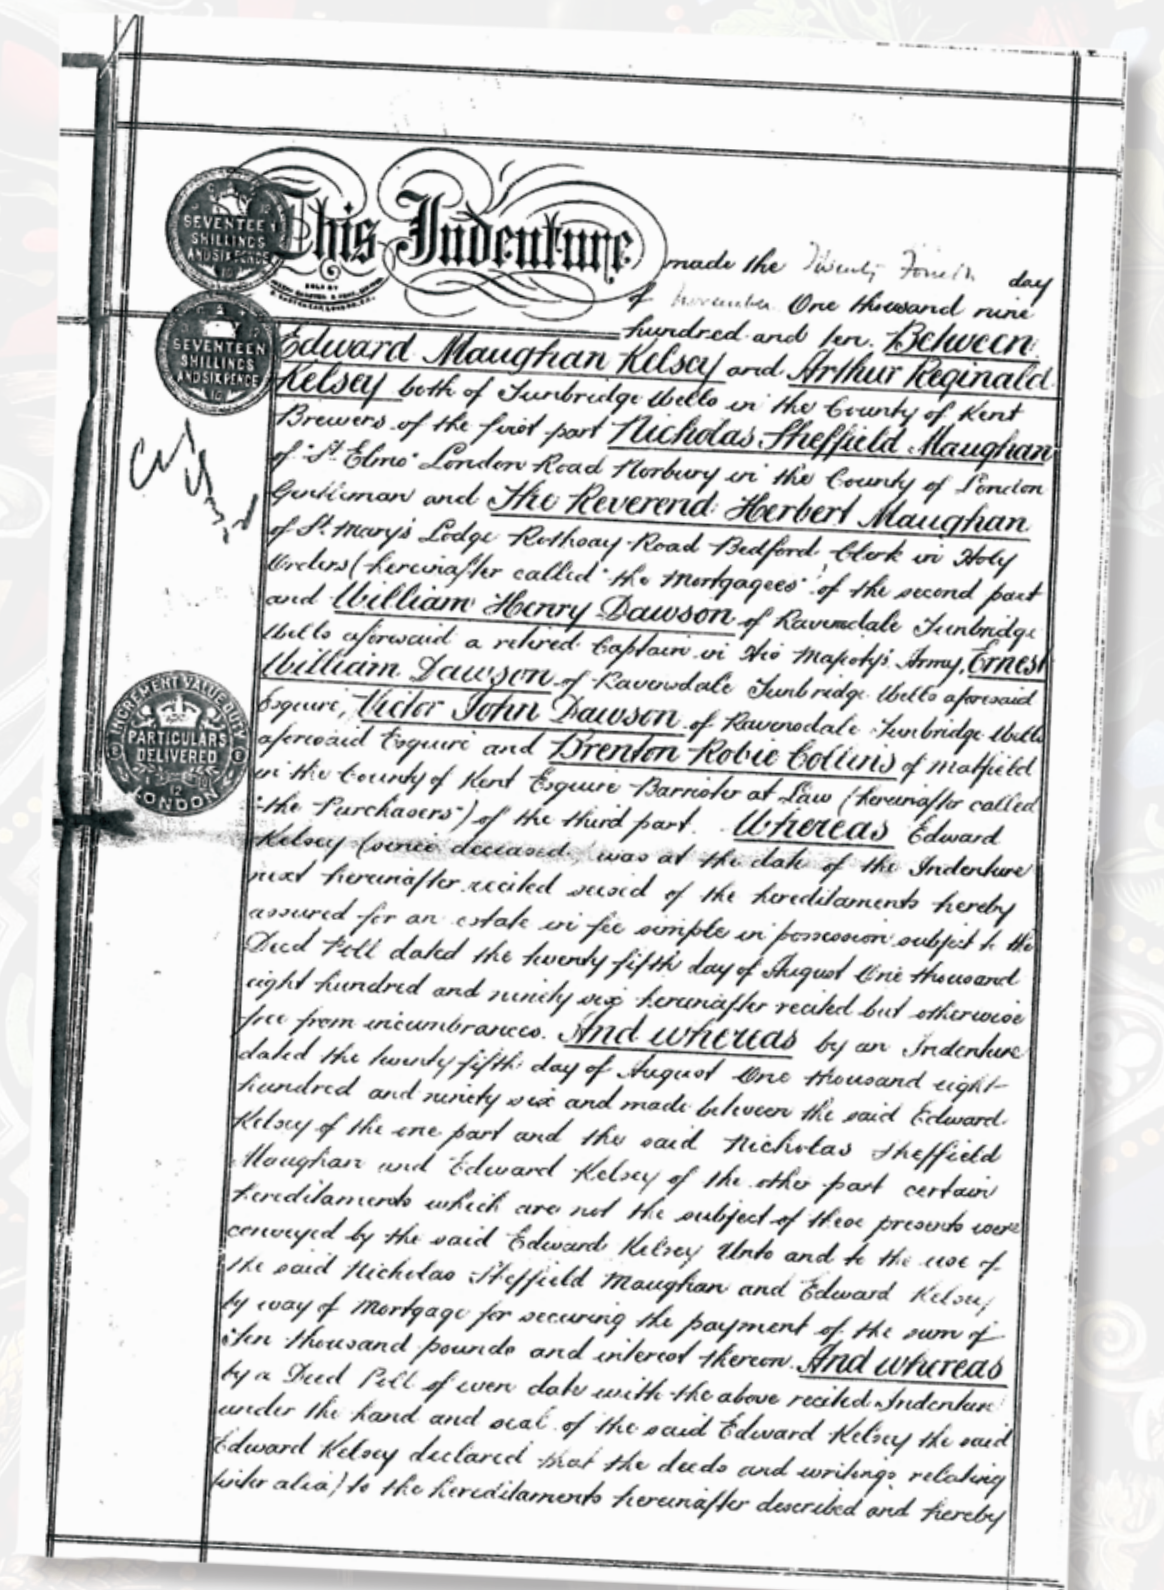 SEVENTEEN
SHILLINGS
AND SIXPENCE
This Indenture
SOLD BY
made the Twenty Fourth day
of November One thousand nine
hundred and ten. Between
Edward Maughan Kelsey and Arthur Reginald
Kelsey both of Tunbridge Wells in the County of Kent
Brewers of the first part Nicholas Sheffield Maughan
of "St Elmo" London Road Norbury in the County of London
Gentleman and The Reverend Herbert Maughan
of St Mary's Lodge Rothsay Road Bedford Clerk in Holy
Orders (hereinafter called "the Mortgagees") of the second part
and William Henry Dawson of Ravensdale Tunbridge
Wells aforesaid a retired Captain in His Majesty's Army, Ernest
William Dawson of Ravensdale Tunbridge Wells aforesaid
Esquire, Victor John Dawson of Ravensdale Tunbridge Wells
aforesaid Esquire and Brenton Robie Collins of Matfield
in the County of Kent Esquire Barrister at Law (hereinafter called
"the Purchasers") of the third part. Whereas Edward
Kelsey (since deceased) was at the date of the Indenture
next hereinafter recited seised of the hereditaments hereby
assured for an estate in fee simple in possession subject to the
Deed Poll dated the twenty fifth day of August One thousand
eight hundred and ninety six hereinafter recited but otherwise
free from incumbrances. And whereas by an Indenture
dated the twenty fifth day of August One thousand eight
hundred and ninety six and made between the said Edward
Kelsey of the one part and the said Nicholas Sheffield
Maughan and Edward Kelsey of the other part certain
hereditaments which are not the subject of these presents were
conveyed by the said Edward Kelsey Unto and to the use of
the said Nicholas Sheffield Maughan and Edward Kelsey
by way of Mortgage for securing the payment of the sum of
ten thousand pounds and interest thereon. And whereas
by a Deed Poll of even date with the above recited Indenture
under the hand and seal of the said Edward Kelsey the said
Edward Kelsey declared that the deeds and writings relating
(inter alia) to the hereditaments hereinafter described and hereby
SEVENTEEN
SHILLINGS
AND SIXPENCE
INCREMENT VALUE DUTY
PARTICULARS
DELIVERED
12
LONDON